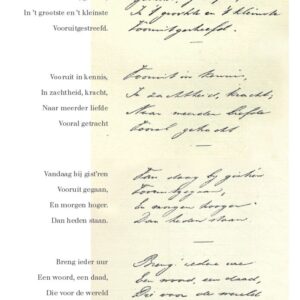 In 't grootste en 't kleinste
Vooruitgestreefd.
Vooruit in kennis,
In zachtheid, kracht,
Naar meerder liefde
Vooral getracht
Vandaag bij gist'ren
Vooruit gegaan,
En morgen hoger.
Dan heden staan.
Breng ieder uur
Een woord, een daad,
Die voor de wereld
In 't grootste en 't kleinste
Vooruitgestreefd.
Vooruit in kennis,
In zachtheid, kracht,
Naar meerder liefde
Vooral getracht
Van daag bij gist'ren
Vooruit gegaan,
En morgen hooger.
Dan heden staan.
Breng ieder uur
Een woord, een daad,
Die voor de wereld